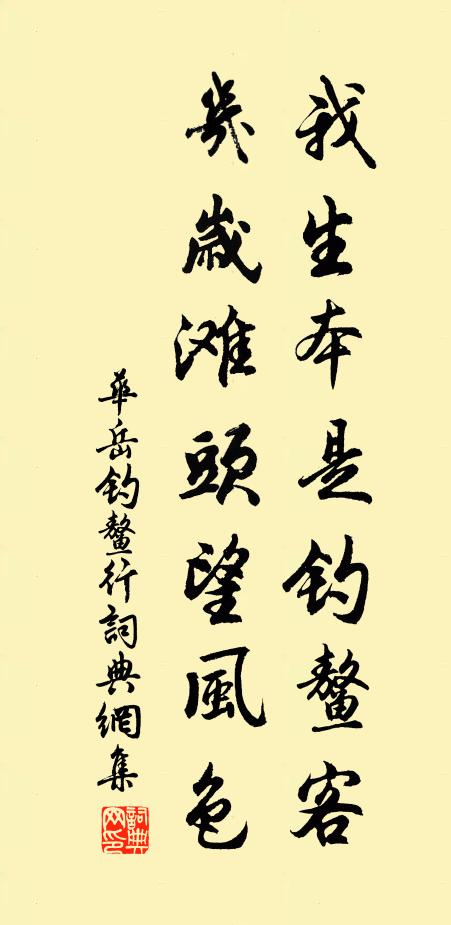 我生本是钓鳌客
几歲滩頭望風色
華岳钓鳌行詞典網集
詞典网印